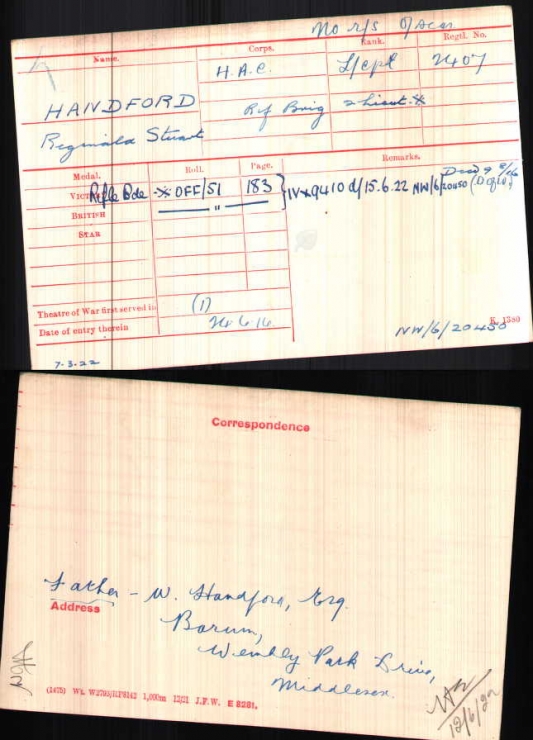 No r/s 
Name. Corps. Rank. Regtl. No.
H.A.C. L/cpl 2407
HANDFORD Rif Brig 2 Lieut. *
Reginald Stuart
Medal. Roll. Page. Remarks.
VICTORY Rifle Bde * OFF/51 183 } IV * 9410 d/15.6.22 NW/6/20450
BRITISH " 
STAR
Theatre of War first served in (1)
Date of entry therein
K. 1380
NW/6/20450
7-3-22
Correspondence
Father - W. Handford, Esq.
Address
Barum,
Wembly Park Drive,
Middlesex.
(1475) Wt. W2793/RP9142 1,000m 12/21 J.F.W. E 8281.
12/6/22